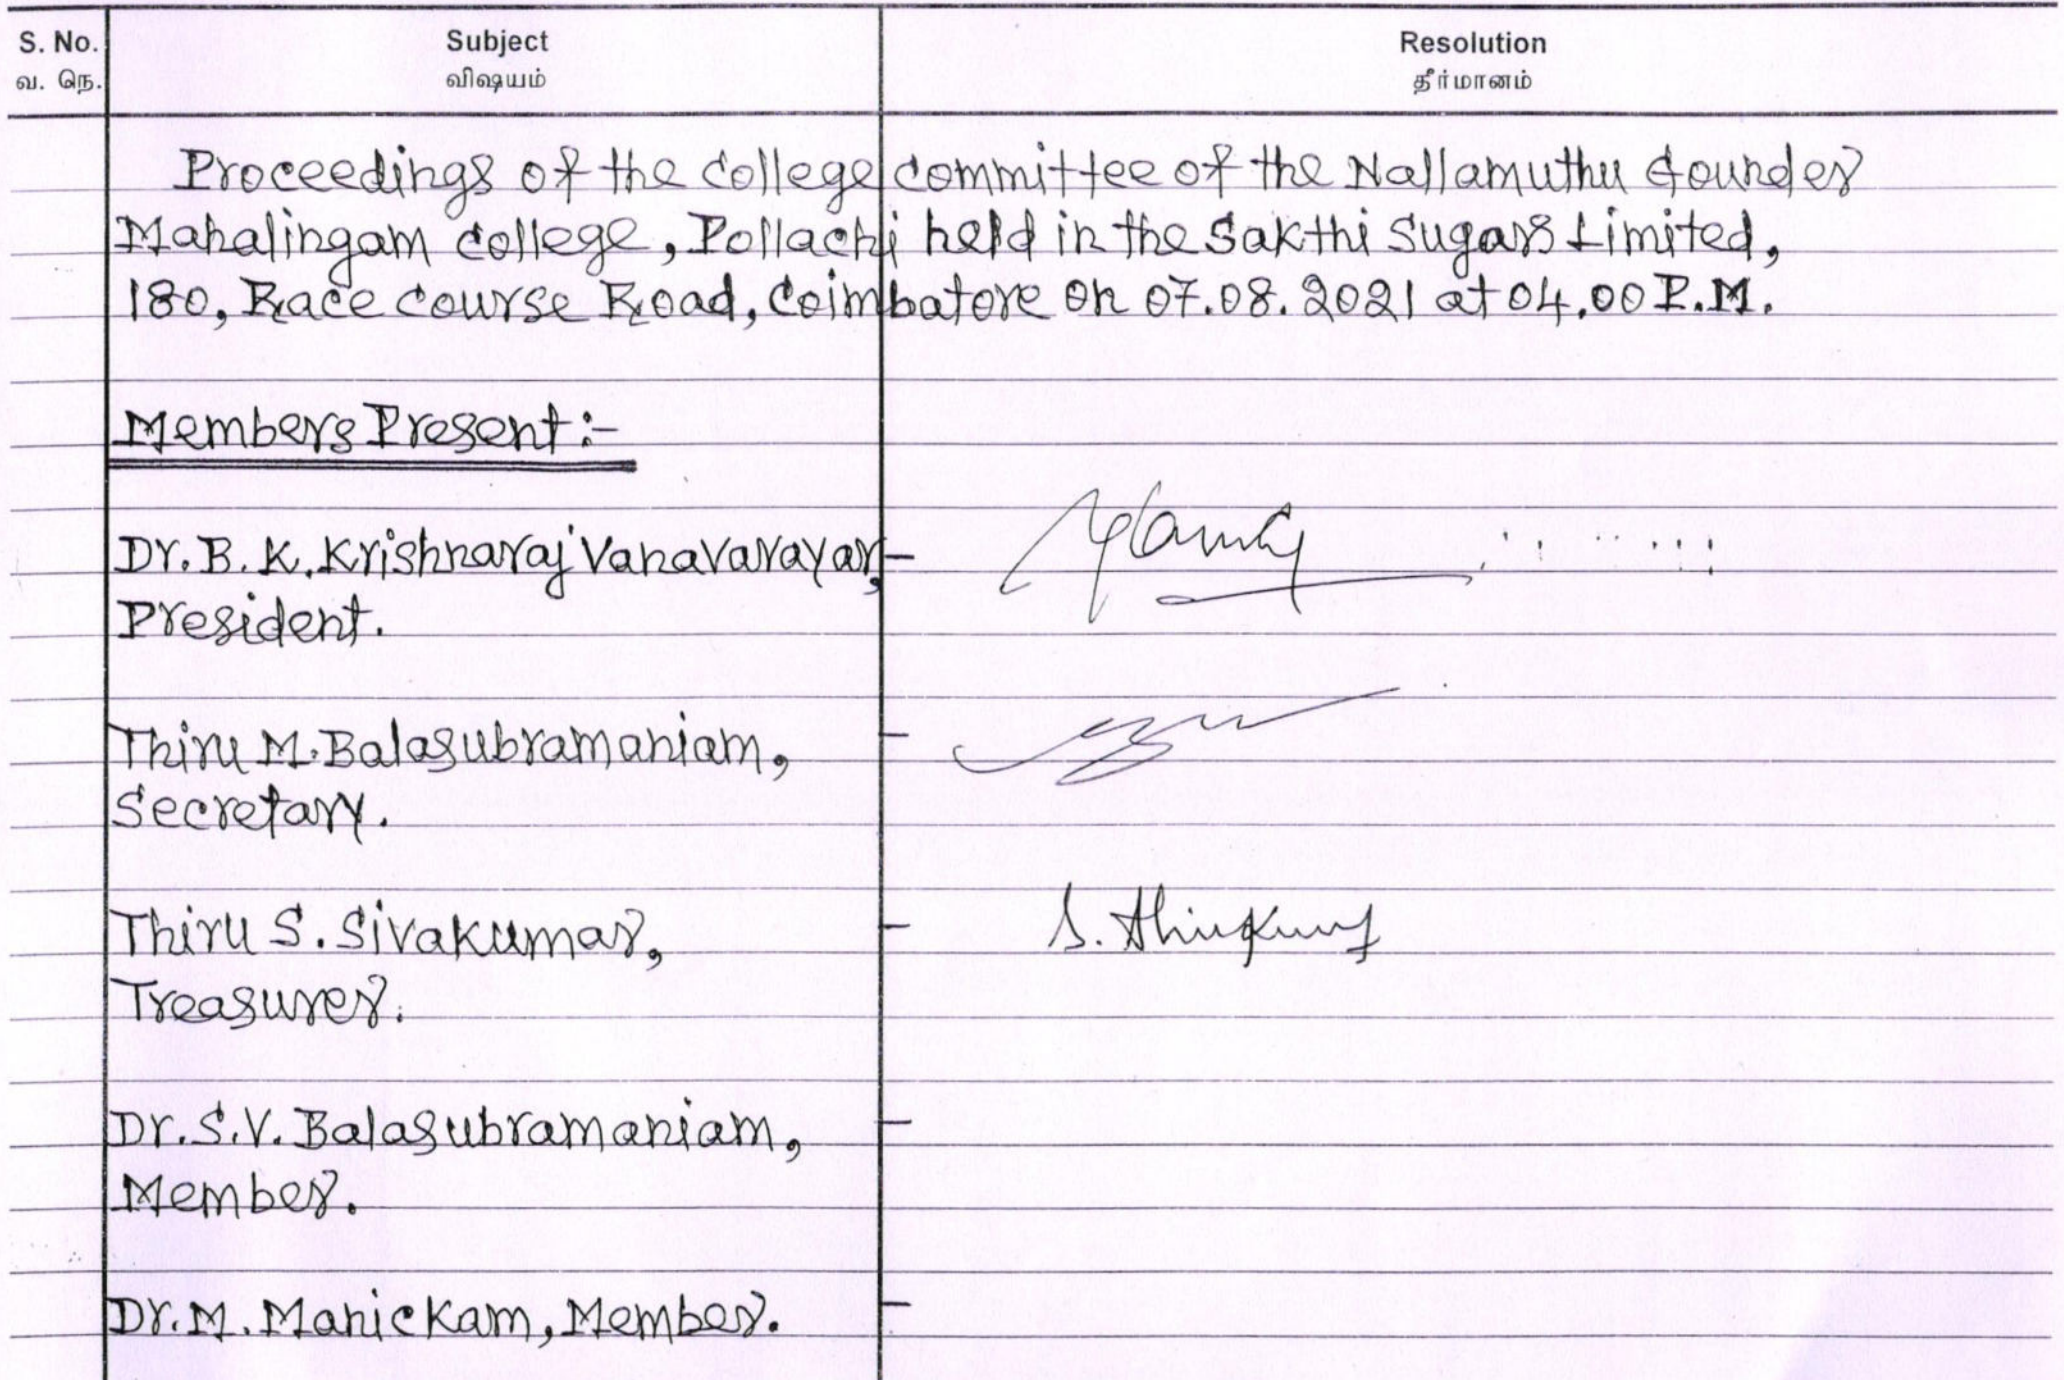 S. No. Subject Resolution
வ. நெ. விஷயம் தீர்மானம்
Proceedings of the College Committee of the Nallamuthu Gounder
Mahalingam College, Pollachi held in the Sakthi Sugars Limited,
180, Race Course Road, Coimbatore on 07.08.2021 at 04.00 P.M.
Members Present:-
Dr. B. K. Krishnaraj Vanavarayar, -
President.
Thiru M. Balasubramaniam, -
Secretary.
Thiru S. Sivakumar, -
Treasurer.
Dr. S.V. Balasubramaniam, -
Member.
Dr. M. Manickam, Member. -